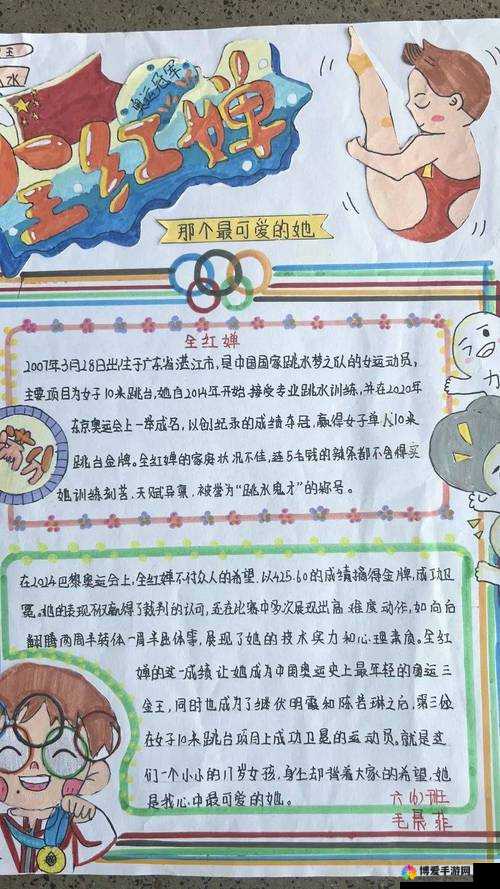 奥运冠军
全红婵
那个最可爱的她
全红婵
2007年3月28日出生于广东省湛江市,是中国国家跳水梦之队的女运动员,
主要项目为女子10米跳台,她自2014年开始接受专业跳水训练,并在2020年
东京奥运会上一举成名,以创纪录的成绩夺冠,赢得女子单人10米
跳台金牌。全红婵的家庭状况不佳,连5毛钱的辣条都不舍得买
她训练刻苦,天赋异禀,被誉为“跳水鬼才”的称号。
满分
在2024巴黎奥运会上,全红婵不付众人的希望,以425.60的成绩摘得金牌,成功卫
冕。她的表现不仅赢得了裁判的认可,还在比赛中多次展现出高难度动作,如向后
翻腾两周半转体一周半屈体等,展现了她的技术实力和心理素质。全红
婵的这一成绩让她成为中国奥运史上最年轻的奥运三
金王,同时也成为了继伏明霞和陈若琳之后,第三位
在女子10米跳台项目上成功卫冕的运动员。就是这
们一个小小的17岁女孩,身上却背着大家的希望,她
是我心中最可爱的她。
六(6)班
毛晨菲
博爱手游网